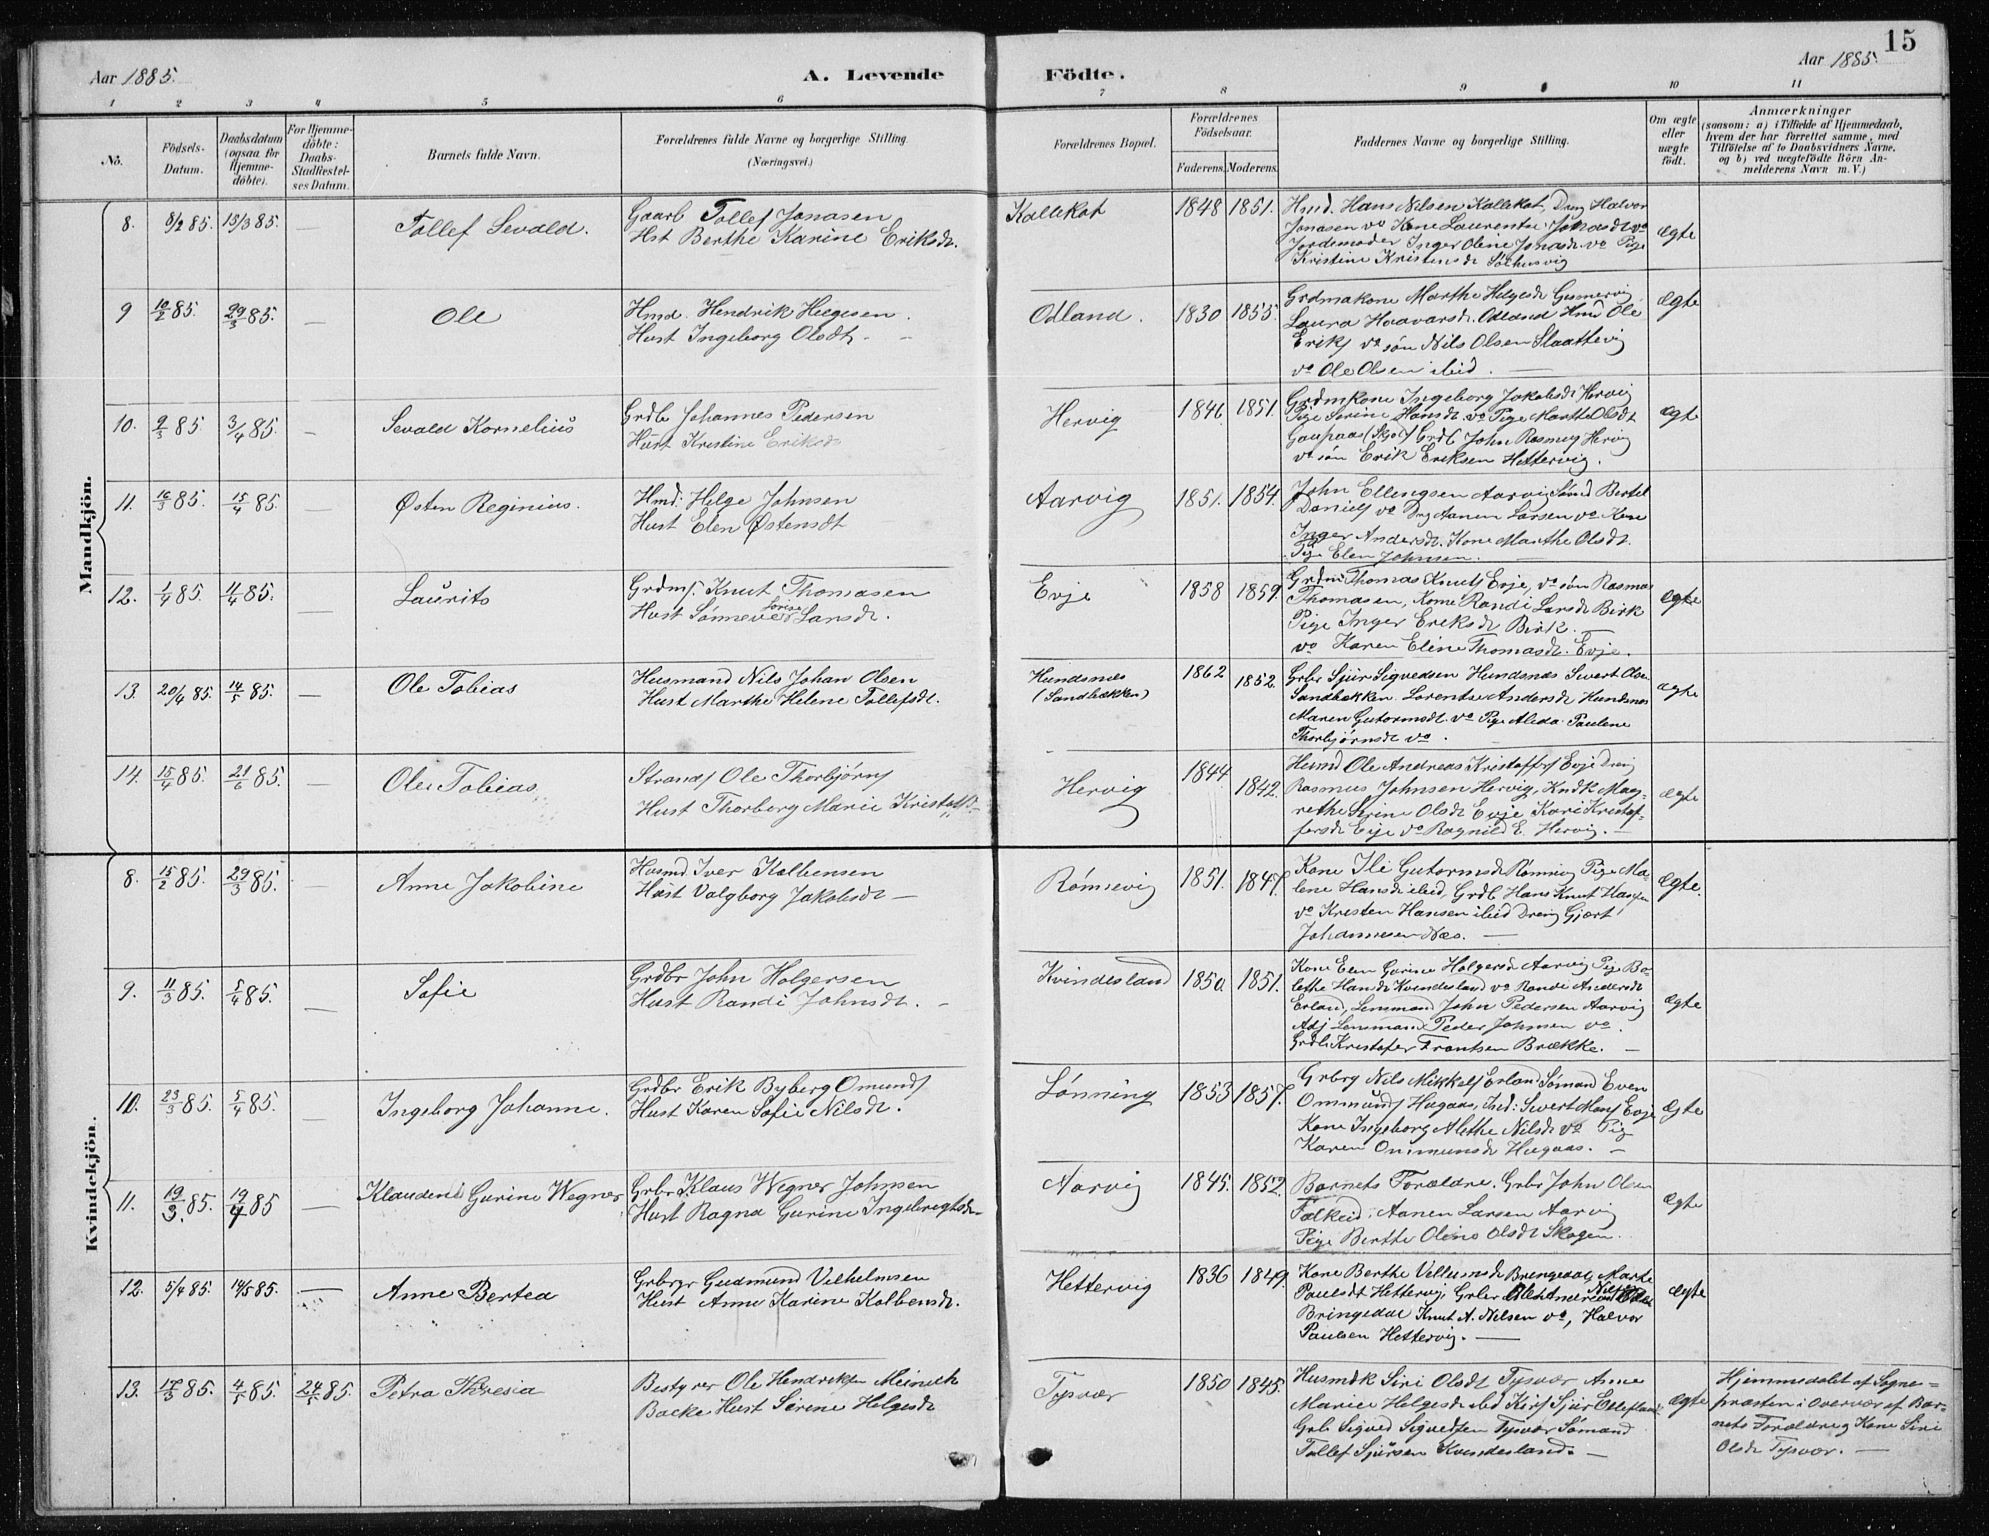 15
Aar 1885.
A. Levende
Födte.
Aar 1885.
1 2 3 4 5 6 7 8 9 10 11
No.
Födsels-Datum.
Daabsdatum (ogsaa for Hjemme-döbte).
For Hjemme-döbte: Daabs-Stadfæstel-ses Datum.
Barnets fulde Navn.
Forældrenes fulde Navne og borgerlige Stilling.
(Næringsvei.)
Forældrenes Bopæl.
Forældrenes Födselsaar.
Faderens. Moderens.
Faddernes Navne og borgerlige Stilling.
Om ægte eller uægte födt.
Anmærkninger
(saasom: a) i Tilfælde af Hjemmedaab, hvem der har forrettet samme, med Tilföielse af to Daabsvidners Navne, og b) ved uægtefödte Börn An-melderens Navn m. V.)
Mandkjön.
8. 8/2 85. 15/3 85. — Tollef Sevald.
Gaarb Tollef Jonasen
Hst Berthe Karine Eriksdt.
Kallekot 1848 1851.
Hmd. Hans Nilsen Kallekot, Dreng Halvor
Jonasen vo Kone Laurentse Jonasdt vo
Jordemoder Inger Oline Jonasdt vo Pige
Kristine Kristensdt
ægte
9 10/2 85. 29/3 85. — Ole
Hmd. Hendrik Helgesen.
Hust Ingeborg Olsdt
Odland. 1830 1855.
Grdmakone Marthe Helgesdt
Laura Haavarsdt. Odland Hmd Ole
Eriks vo søn Nils Olsen Slaattevig
vo Ole Olsen ibid.
Ægte
10. 9/3 85 3/4 85. — Sevald Kornelius
Grdb Johannes Pedersen
Hust Kristine Eriksdt
Hervig 1846 1851.
Grdmkone Ingeborg Jakobsdt Hervig
Pige Serine Hansdt vo Pige Marthe Olsdt
Gaupaas (Skjol) Grdb John Rasmus Hervig
vo søn Erik Eriksen Hettervig.
ægte
11. 16/3 85. 15/4 85. — Østen Reginius.
Hmd: Helge Johnsen
Hust Elen Østensdt
Aarvig 1851. 1854.
John Ellingsen Aarvig Sømd Bertel
Daniels vo Dreng Aanen Larsen vo Kone
Inger Andersdt. Kone Marthe Olsdt.
Pige Elen Johnsen.
12. 1/4 85. 11/4 85. — Laurits
Grdms. Knut Thomasen
Hust Sønneve Larsdt.
Evje 1858 1859.
Grdm Thomas Knuts Evje, vo søn Rasmus
Thomasen, Kone Randi Larsdt Birk
Pige Inger Eriksdt Birk.
vo Karen Eline Thomasdt. Evje.
Ægte
13. 20/4 85. 14/5 85. — Ole Tobias
Husmand Nils Johan Olsen
Hust Marthe Helene Tollefsdt.
Hundsnæs
(Sandbækken)
1862 1852.
Grbr Sjur Sigvedsen Hundsnæs Sivert Olsen
Sandbækken. Lorentse Andersdt Hundsnæs
Maren Gutormsdt. vo Pige Alida Pauline
Thorbjørnsdt vo.
ægte
14. 15/4 85. 21/6 85. — Ole Tobias.
Strands Ole Thorbjørns
Hust Thorborg Marie Kristoffs
Hervig 1844 1842.
Husmd Ole Andreas Kristoffers Evje Dreng
Rasmus Johnsen Hervig, Kndk Mag-
rethe Serine Olsdt Evje Kari Kristof-
fersdt Evje vo Ragnild E. Hervig.
ægte
Kvindekjön.
8. 15/2 85. 29/3 85. — Anne Jakobine
Husmd. Iver Kolbensen
Hust Valgborg Jakobsdt —
Rømsevig 1851. 1847.
Kone Ili Gutormsdt Rømsvig Pige Ma-
lene Hansdt ibid, Grdb Hans Knut Hansen
vo Kristen Hansen ibid Dreng Gjert
Johannesen Næs.
Ægte.
9. 11/3 85. 5/4 85. — Sofie
Grdbr John Holgersen
Hust Randi Johnsdt.
Kvindesland 1850. 1851.
Kone Elen Gurine Holgersdt Aarvig Pige Bo-
lethe Hansdt Kvindesland vo Randi Andersdt
Erland, Lensmand John Pedersen Aarvig
Adj Lensmand Peder Johnsen vo.
Grdb Kristofer Frantsen Brække.
ægte
10. 23/3 85. 5/4 85. — Ingeborg Johanne.
Grdbr Erik Byberg Omunds
Hust Karen Sofie Nilsdt.
Lønning 1853 1857.
Grbrg Nils Mikkels Erland Sømand Even
Ommunds Haugaas, Ind: Sivert Mons Evje
Kone Ingeborg Alethe Nilsdt vo Pig
Karen Ommunsdt Haugaas.
Ægte
11. 19/3 85. 19/4 85 — Klaudene Gurine Wegner
Grbr Klaus Wegner Johnsen
Hust Ragna Gurine Ingebregtsdt
Aarvig 1845. 1852.
Barnets Forældre. Grbr John Olsen
Falkeid Aanen Larsen Aarvig
Pige Berthe Oline Olsdt Skogen.
Ægte
12. 5/4 85 14/5 85. — Anne Bertea
Grbrgr Gudmund Velhelmsen
Hust Anne Karine Kolbensdt.
Hettervig 1836 1849.
Kone Berthe Vellumsdt Bringedal, Marte
Paulsdt Hettervig Grbr
Bringedal Knut A. Nilsen vo, Halvor
Paulsen Hettervig.
ægte
13. 17/3 85. 4/5 85. 24/5 85. Petra Theresia
Bestyrer Ole Hendriksen Meinich
Backe Hust Sirene Helgesdt
Tysvær 1850 1845.
Husmdk Siri Olsdt Tysvær Anne
Marie Helgesdt ibid Kirs Sjur
Grb Sigved Sigvedsen Tysvær Sømand
Tollef Sjursen Kvindesland.
ægte
Hjemmedøbt af Sogne-
præsten i Overvær af Bar-
nets Forældre og Kone Siri
Olsdt Tysvær. —